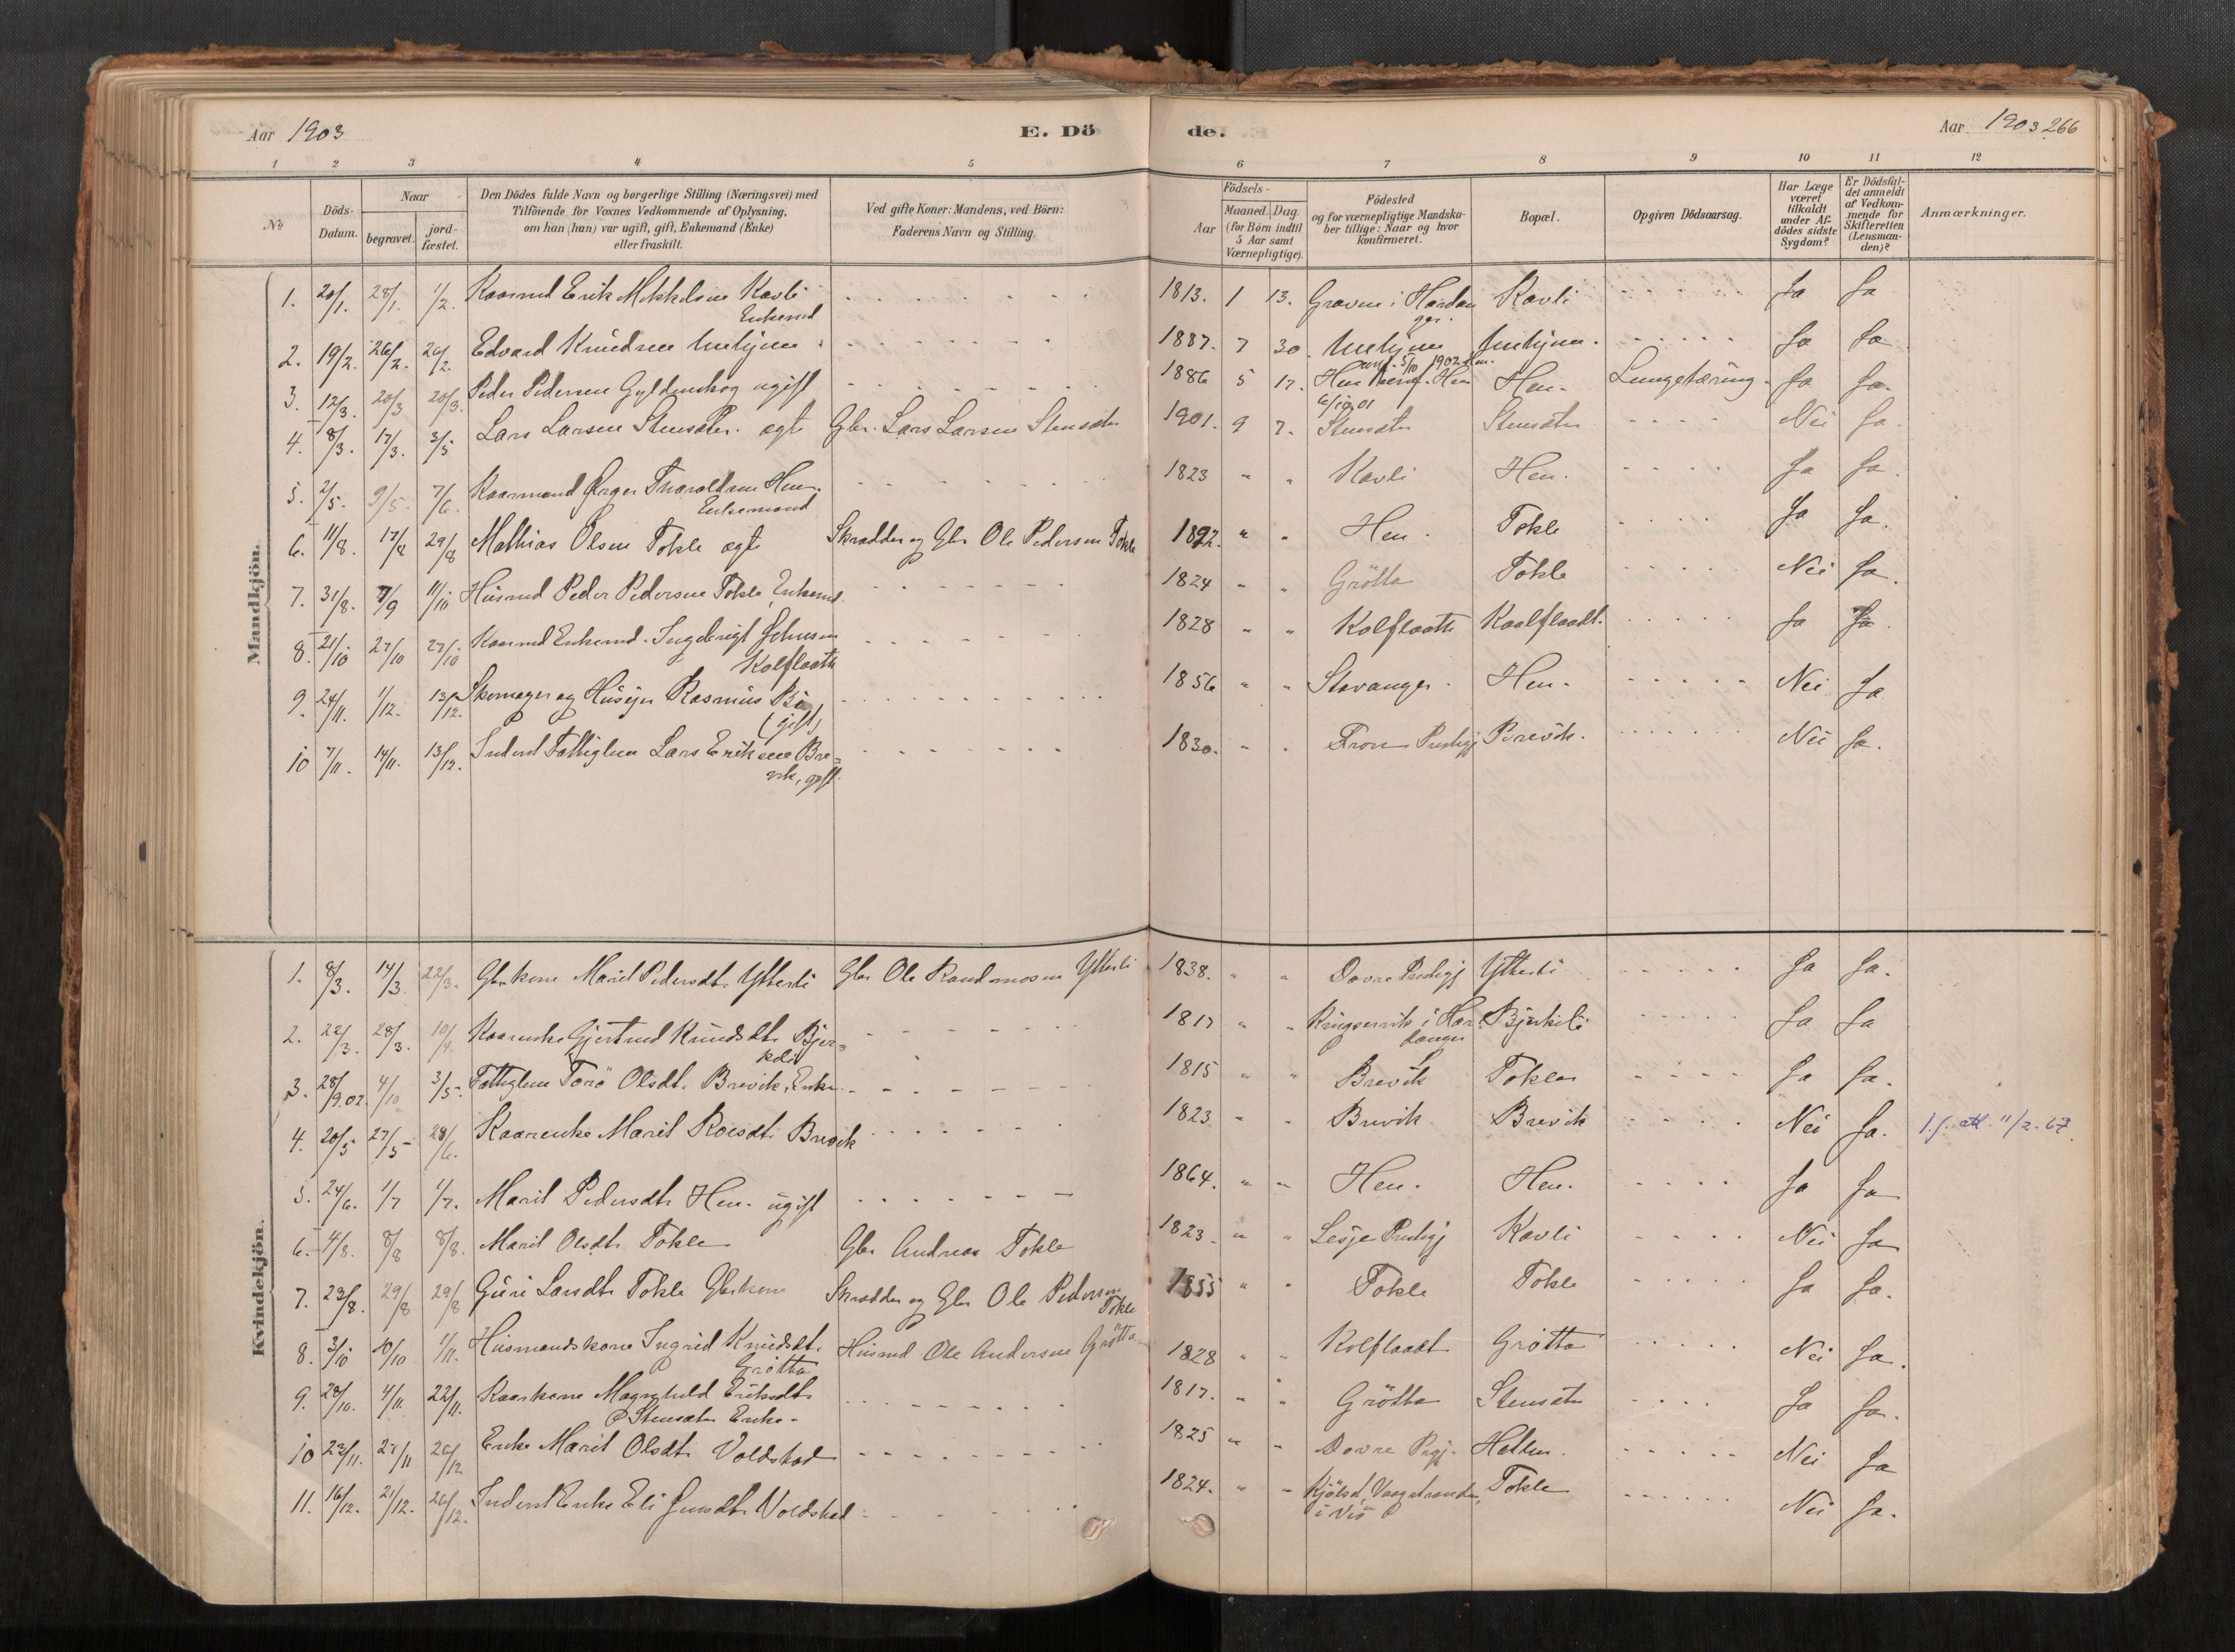 Aar 1903 E. Dö de. Aar 1903 266
1 2 3 4 5 6 7 8 9 10 11 12
No Döds-Datum. Naar begravet. jord-fæstet. Den Dödes fulde Navn og borgerlige Stilling (Næringsvei) med Tilföiende for Voxnes Vedkommende af Oplysning, om han (hun) var ugift, gift, Enkemand (Enke) eller fraskilt. Ved gifte Koner: Mandens, ved Börn: Faderens Navn og Stilling. Födsels- Aar Maaned. Dag. (for Börn indtil 5 Aar samt Værnepligtige). Födested og for værnepligtige Mandskaber tillige: Naar og hvor konfirmeret. Bopæl. Opgiven Dödsaarsag. Har Læge været tilkaldt under Afdödes sidste Sygdom? Er Dödsfaldet anmeldt af Vedkommende for Skifteretten (Lensmanden)? Anmærkninger.
Mandkjön.
1. 20/1. 28/1. 1/2. Kaarmd Erik Mikkelsen Kavli Enkemd 1813. 1 13. Graven i Hardanger. Kavli Ja Ja
2. 19/2. 26/2. 26/2. Edvard Knudsen 1887. 7 30. Ja Ja
3. 12/3. 20/3 20/3. Peder Pedersen Gyldenskog ugift 1886 5 17. Hen Hen. Lungetæring. Ja Ja.
4. 8/3. 17/3. 3/5 Lars Larsen Stensæter. ægte Gbr. Lars Larsen Stensæter 1901. 9 7. Stensæter Stensæter Nei Ja.
5. 2/5. 9/5. 7/6. Kaarmand Thoraldsen Hen. Enkemand 1823 " " Kavli Hen. Ja Ja.
6. 11/8. 17/8 29/8 Mathias Olsen Tokle ægte Skrædder og Gbr Ole Pedersen Tokle 1892. " " Hen. Tokle Ja Ja.
7. 31/8. 7/9 11/10 Husmd Peder Pedersen Tokle, Enkemd. 1824 " " Grötta Tokle Nei Ja.
8. 21/10 27/10 27/10 Kaarmd Enkemd. Ingebrigt Johnsen Kolflaath 1828 " " Kolflaath Kaalflaadt. Ja Ja.
9. 24/11. 1/12. 13/12. Skomager og Husejer Rasmus (gift) 1856 " " Stavanger. Hen. Nei Ja
10 7/11. 14/11. 13/12. Inderst Fattiglem Lars Eriksen Brevik, gift. 1830. " " Fron Prestgj Brevik. Nei Ja.
Kvindekjön.
1. 8/3. 14/3. 22/3. Gbrkone Marit Pedersdt. Ytterli Gbr Ole Ytterli 1838. " " Dovre Prestgj Ytterli Ja Ja.
2. 22/3. 28/3. 10/4. Kaarenke Gjertrud Knudsdt. Bjerkeli 1817 " " i Hardanger Bjerkeli Ja Ja
3. 28/9.02. 4/10 3/5. Fattiglem Olsdt. Brevik, Enke 1815 " " Brevik Tokle Ja Ja.
4. 20/5 27/5 28/6. Kaarenke Marit Roesdt. Brevik 1823 " " Brevik Brevik Nei Ja. 11/2-67.
5. 24/6. 1/7 1/7. Marit Pedersdt. Hen. ugift 1864. " " Hen. Hen. Ja Ja
6. 4/8. 8/8 8/8. Marit Olsdt. Tokle Gbr Andreas Tokle 1823. " " Lesje Prestgj Kavli Nei Ja
7. 23/8. 29/8 29/8 Guri Larsdt. Tokle Gbrkone Skrædder og Gbr Ole Pedersen Tokle 1855 " " Tokle Tokle Ja Ja.
8. 3/10 10/10 1/11. Husmandskone Ingrid Knudsdt. Grötta Husmd Ole Andersen Grötta 1828 " " Kolflaadt Grötta Nei Ja.
9. 28/10. 4/11 22/11. Kaarkone Magnhild Eriksdt. Stensæter Enke. 1817. " " Grötta Stensæter Ja Ja.
10 22/11. 27/11 26/12 Enke Marit Olsdt. Voldstad 1825 " " Dovre Prgj. Nei Ja
11. 16/12. 21/12. 26/12. Inderst Enke Eli Jensdt. Voldstad 1824. " " Tokle Nei Ja.